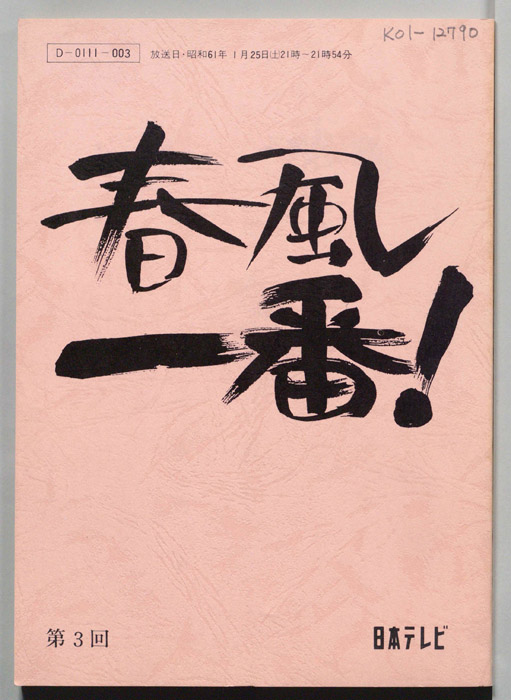 K01-12790
D-0111-003 放送日・昭和61年 1月25日(土)21時~21時54分
春風
一番!
第3回 日本テレビ